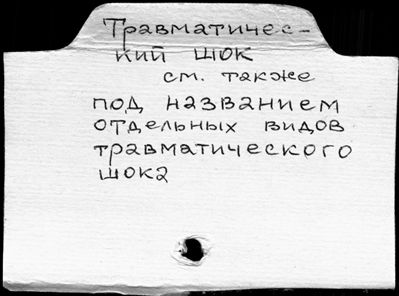 Травматичес-
кий шок
см. также
под названием
отдельных видов
травматического
шока